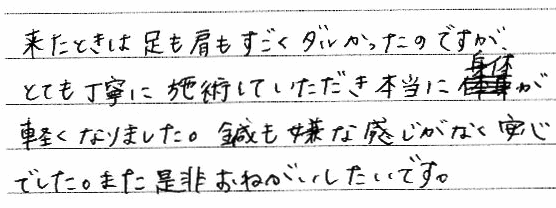 来たときは足も肩もすごくダルかったのですが、
とても丁寧に施術していただき本当に身体が
軽くなりました。鍼も嫌な感じがなく安心
でした。また是非おねがいしたいです。